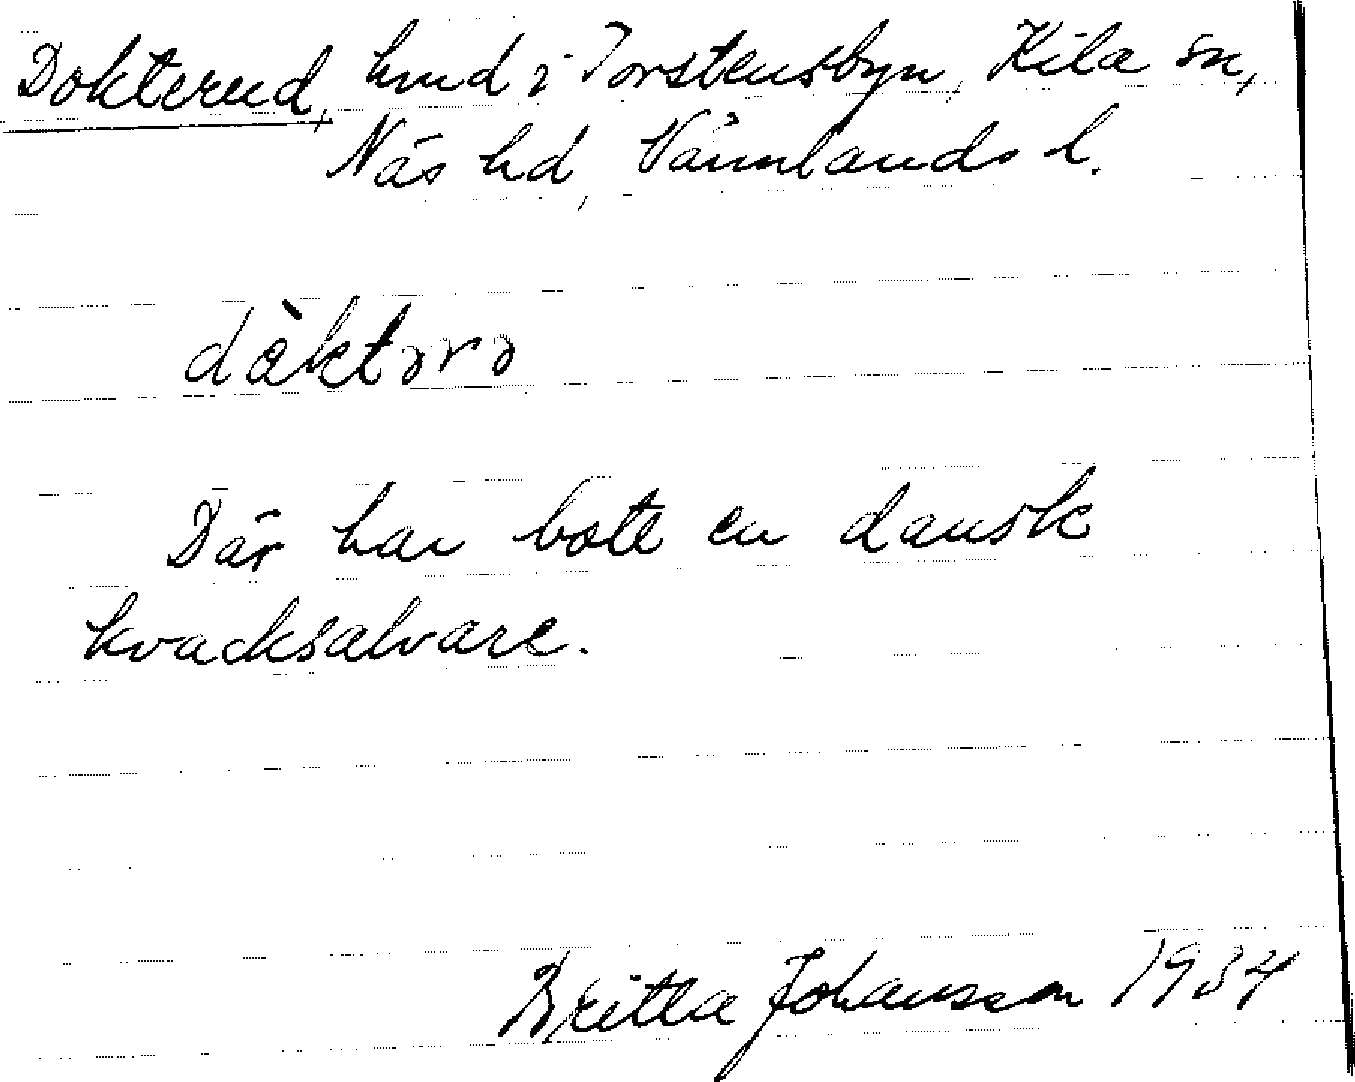 Dokterud, hmd i Torstensbyn, Kila sn,
Näs hd, Värmlands l.
dàktərə
Där har bott en dansk
kvacksalvare.
Britta Johansson 1934